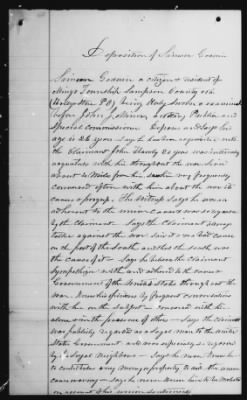 Deposition of Simeon Godwin
Simeon Godwin a citizen & resident of
Mingo Township Sampson County N.C.
being duly sworn & examined
before John J. Notary Public and
Special Commissioner Deposes and says his
age is years Says he has been acquainted with
the Claimant John 20 years was intimately
acquainted with him throughout the war lived
about miles from him saw him very frequently
conversed often with him about the war its
causes & progress. The Says he was an
adherent to the union cause & was so regarded
by the Claimant Says the Claimant always
talked against the war said it was a bad cause
on the part of the South and that the South was
the cause of it – Says he believes the Claimant
Sympathized with and adhered to the cause &
Government of the United States throughout the
war Knew his opinions by frequent conversations
with him on the subject conversed with him
alone & in the presence of others – Says the claimant
was publicly regarded as a loyal man to the United
States Government and was so regarded
by Loyal Neighbors – Says he never knew him
to contribute any money or property to aid the
cause or war – Says he never knew him to be
on account of his union sentiments